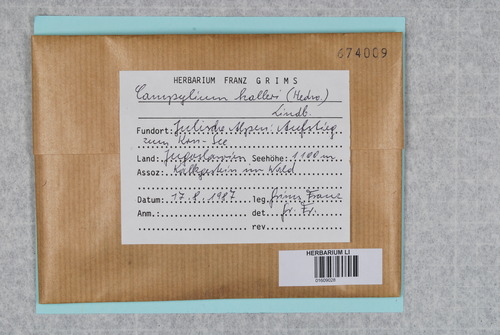 674009
HERBARIUM FRANZ GRIMS
Campylium halleri (Hedw)
Lindb.
Fundort: Julische Alpen: Aufstieg
zum Krn-See
Land: Jugoslawien Seehöhe: 1100 m
Assoz: Kalkgestein im Wald
Datum: 17.8.1987 leg. Grims Franz
Anm.: det. Gr. Fr.
rev.
HERBARIUM LI